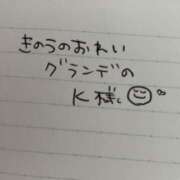 きのうのおれい
グランデの
K様。